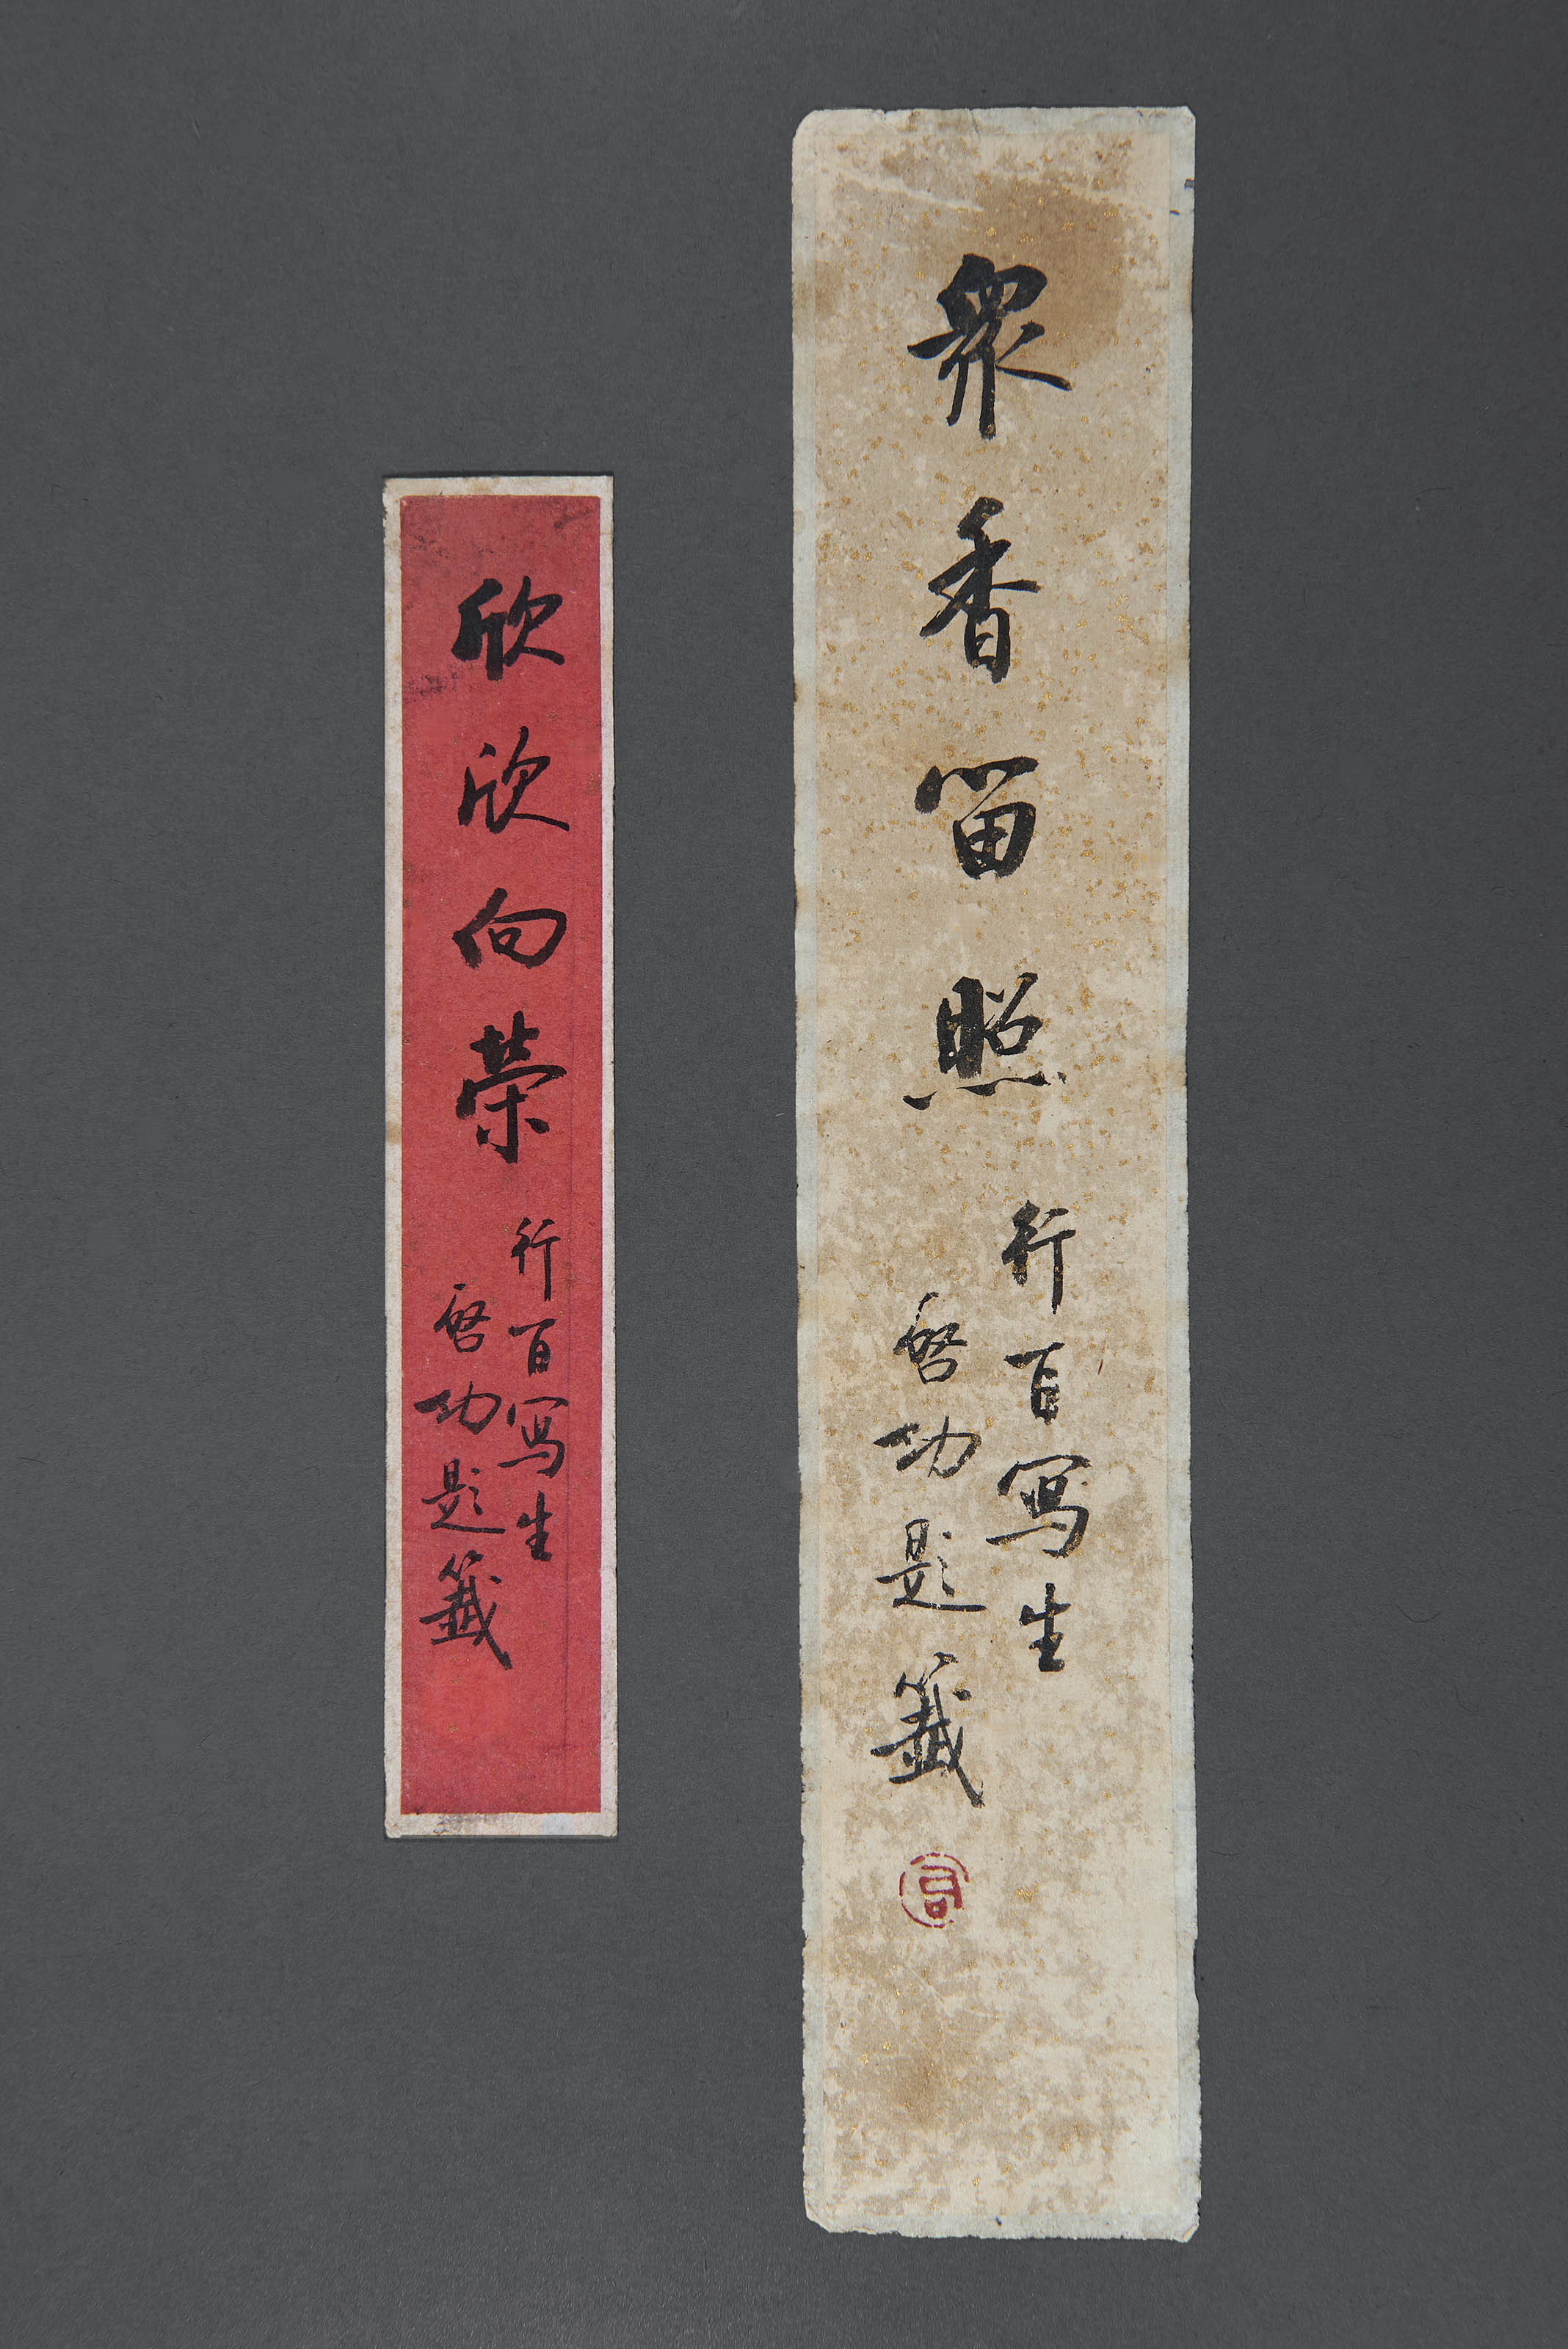 眾香留照
行百寫生
啓功題籤
欣欣向榮
行百寫生
啓功題籤